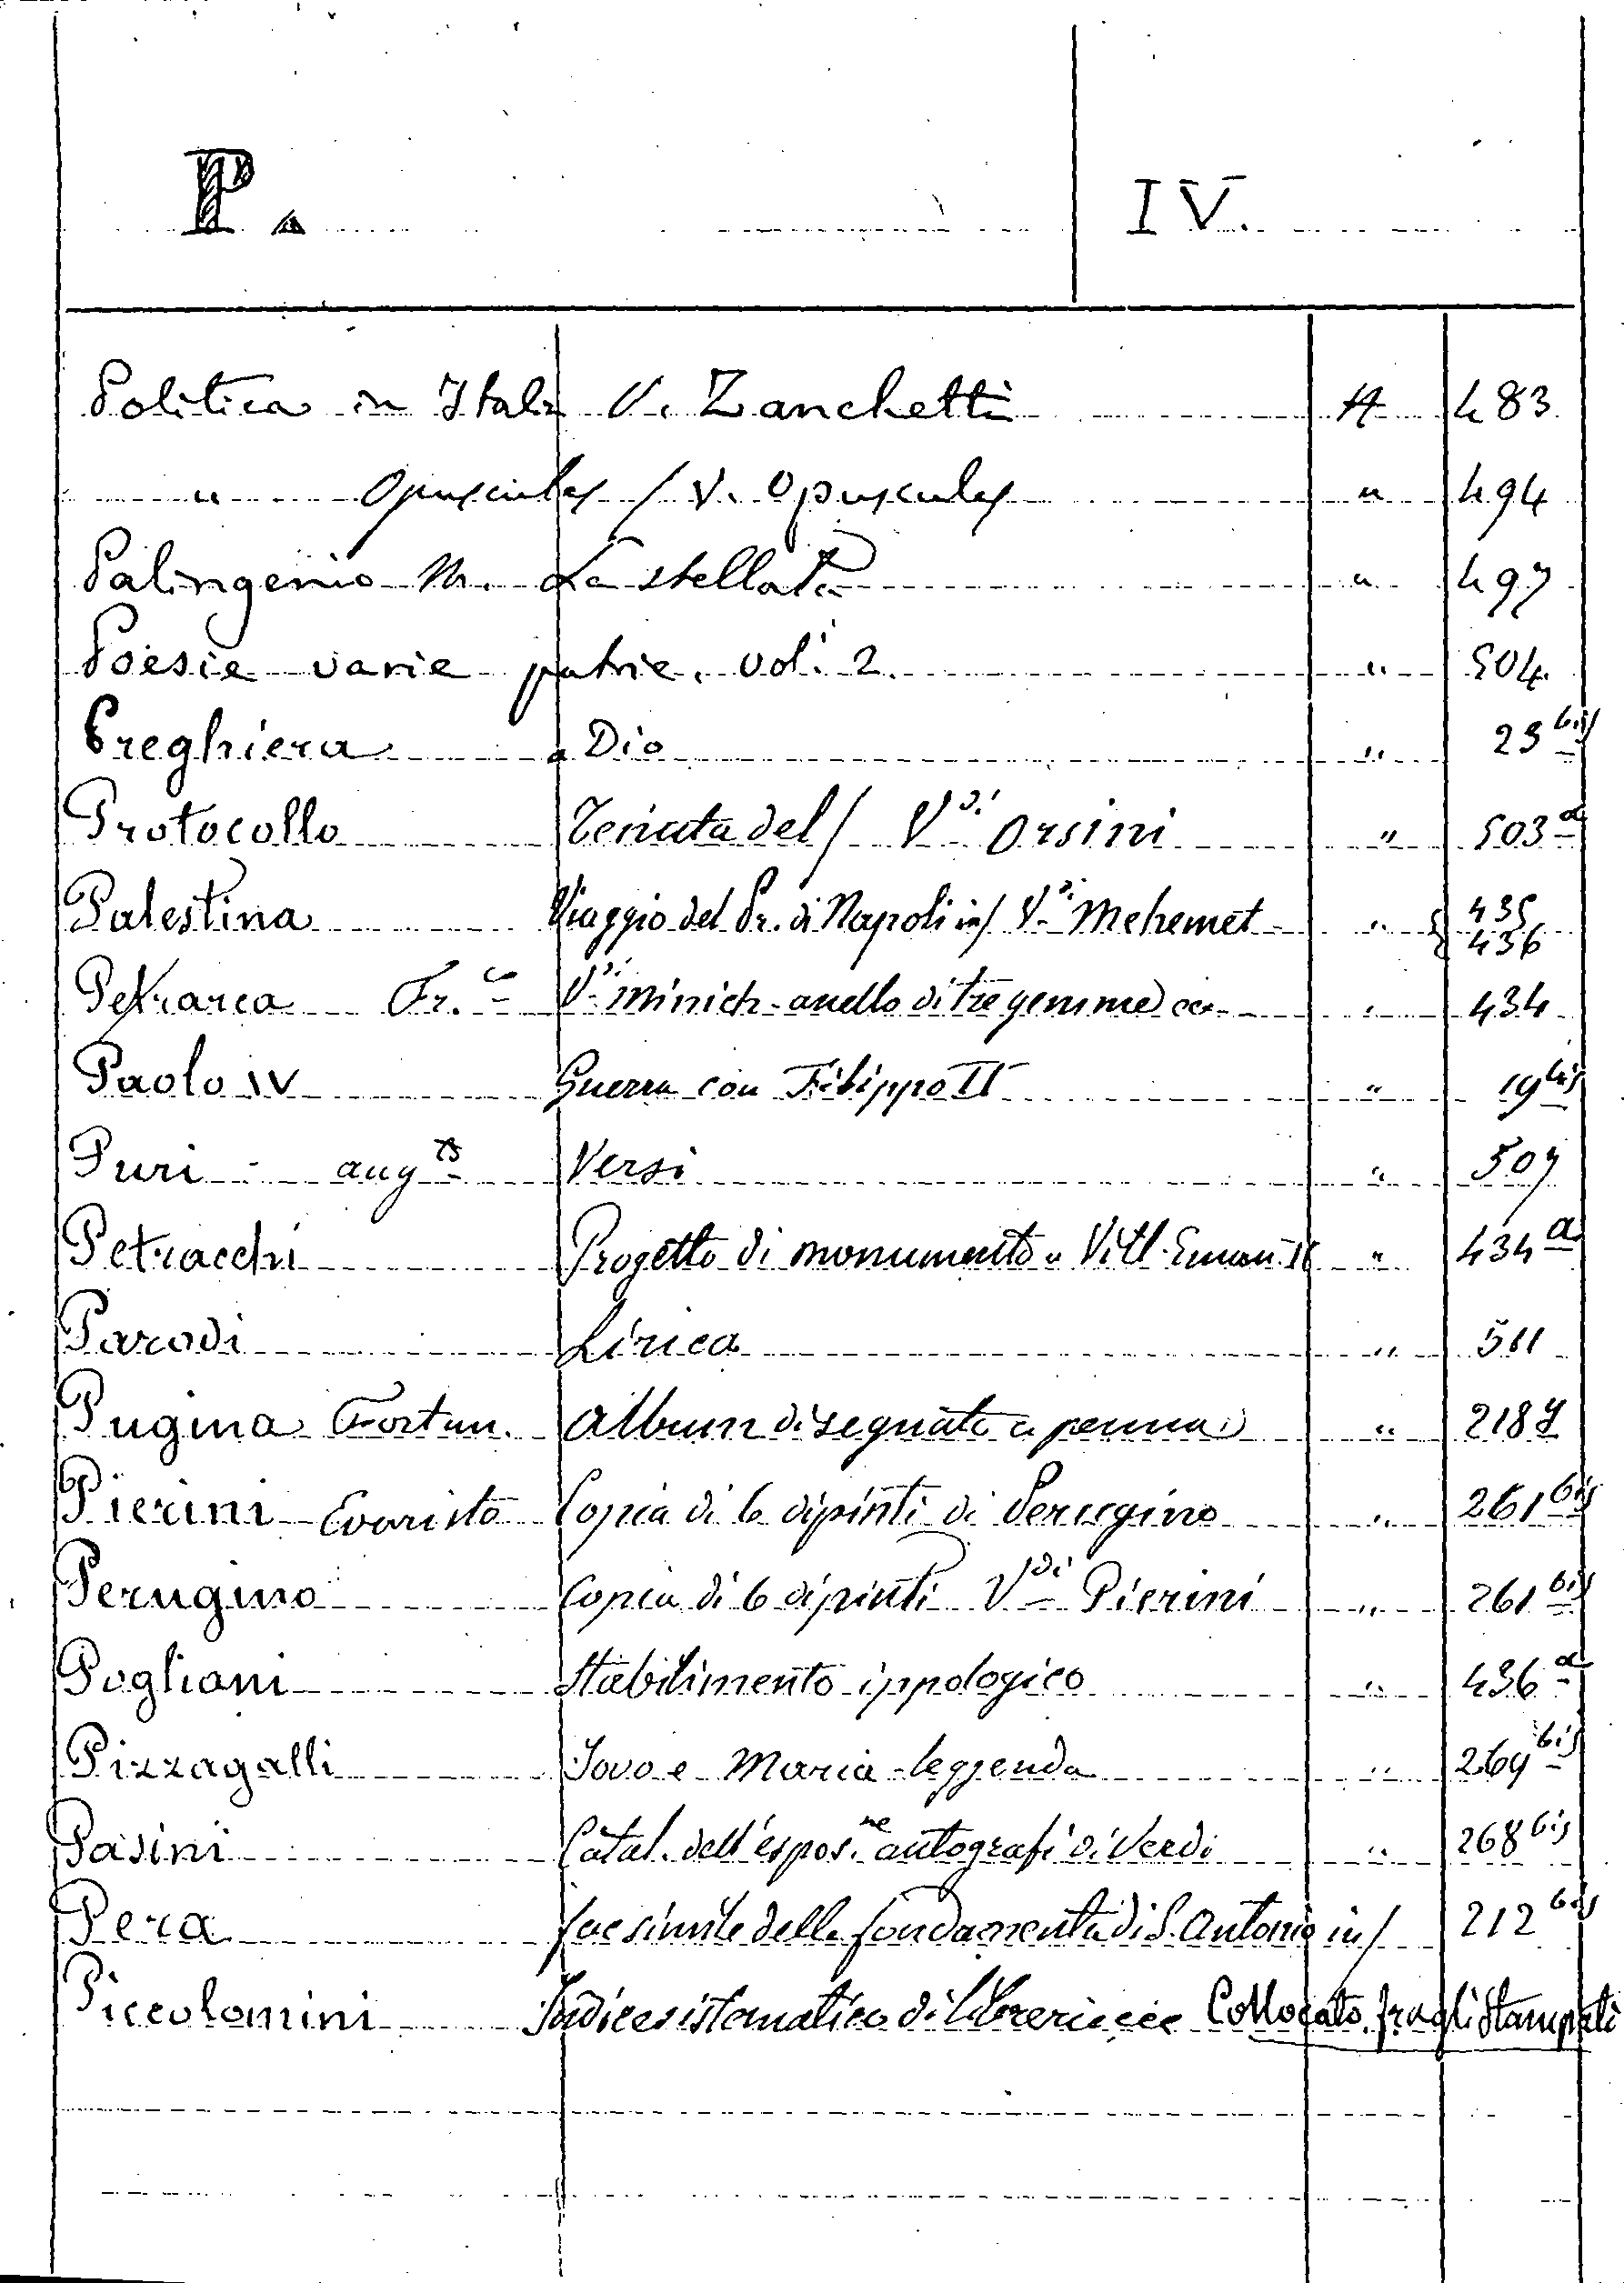 P. IV.
Politica in Italia V. Zanchetti A 483
" Opuscules / V. Opuscules " 494
Palingenio M. La stellata " 497
Poesie varie patrie. vol. 2. " 504.
Preghiera a Dio " 23 bis
Protocollo Tenuta del / V.di Orsini " 503 a
Palestina Viaggio del Pr. di Napoli in / V.di Mehemet " { 435
436
Petrarca Fr.co V.di Minich - anello di tre gemme " 434
Paolo IV Guerra con Filippo II " 19 bis
Puri - aug.to Versi " 507
Petracchi Progetto di monumento a Vitt. Eman. II " 434 a
Parodi Lirica " 511
Pugina Fortun. Album disegnato a penna " 218
Pierini Evaristo Copia di 6 dipinti di Perugino " 261 bis
Perugino Copia di 6 dipinti V.di Pierini " 261 bis
Pogliani Stabilimento ippologico " 436 a
Pizzagalli Jovo e Maria - leggenda " 269 bis
Pasini Catal. dell'espos.ne autografi di Verdi " 268 bis
Pera facsimile della fondamenta di S. Antonio in / 212 bis
Piccolomini Indice sistematico di Collocato fra gli Stampati